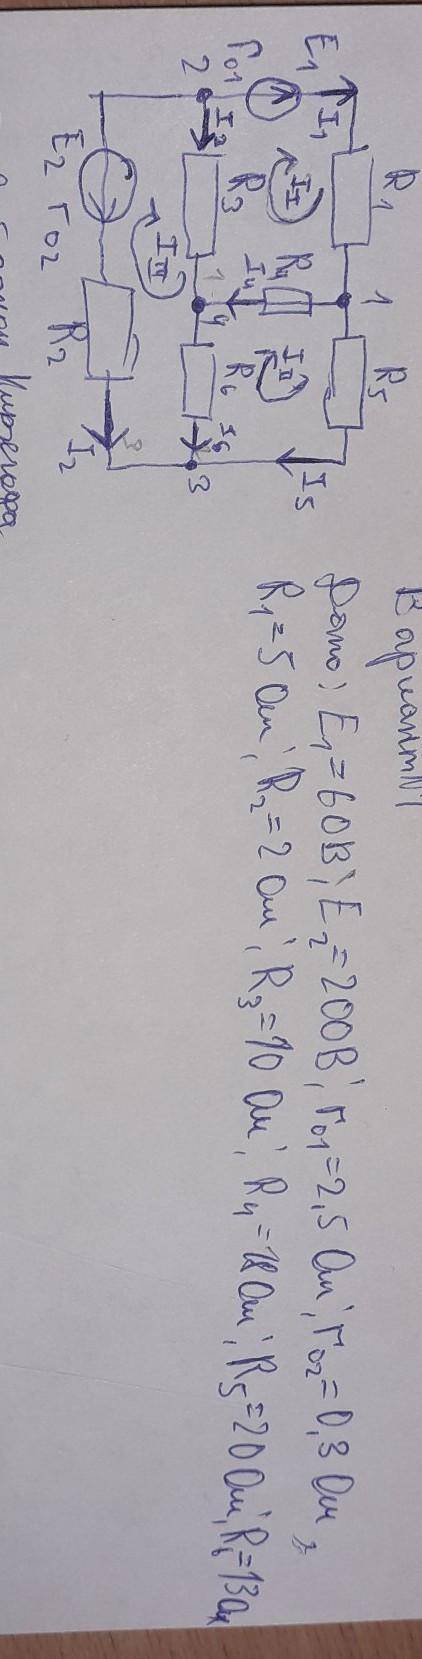 Вариант N1
Дано: E1=60В; E2=200В; r01=2,5 Ом; r02=0,3 Ом;
R1=5 Ом; R2=2 Ом; R3=10 Ом; R4=18 Ом; R5=20 Ом; R6=13 Ом
R1
R5
E1
I1
1
I5
r01
II
R4
I4
III
2
I3
R3
4
R6
I6
3
IIII
E2 r02
R2
I2
Кирхгофа